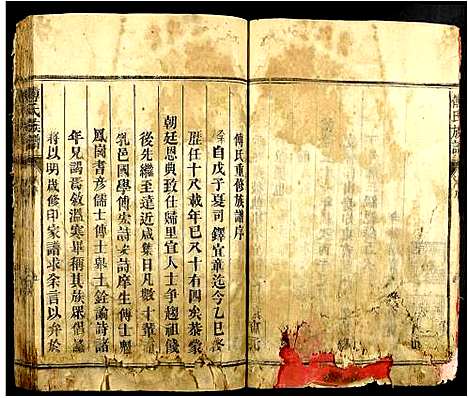 傅氏重修族譜序
余自戊子夏司鐸宜章迄今乙巳冬
歷任十八載年已八十有四矣恭蒙
朝廷恩典致仕歸里宜人士爭趨祖餞
後先繼至遠近咸集日凡數十輩
乳邑國學傅宏詩文詩摩生傅士魁
鳳崗耆彥儒士傅士舉士銓諭詩諸
年兄謁焉敘溫寒畢稱其族眾倡議
將以明歲修印家譜求余言以弁於
傅氏族譜
傅氏族譜